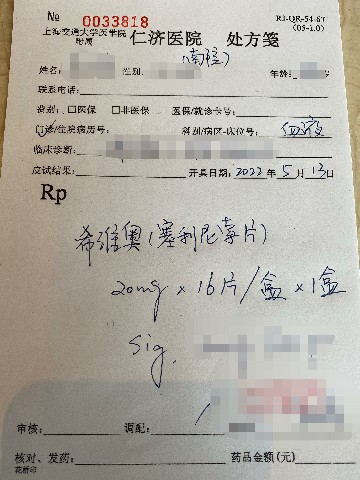 № 0033818
RJ-QR-54-67
(05-1.0)
上海交通大学医学院
附属
仁济医院 处方笺
(南院)
姓名: 性别: 年龄:
联系电话:
费别: □医保 □非医保 医保/就诊卡号:
门诊/住院病历号: 科别/病区-床位号: 血液
临床诊断:
皮试结果: 开具日期: 2022 年 5 月 13日
Rp
希维奥(塞利尼索片)
20mg × 16片/盒 × 1盒
Sig.
审核: 调配:
核对、发药: 药品金额(元)
花桥印